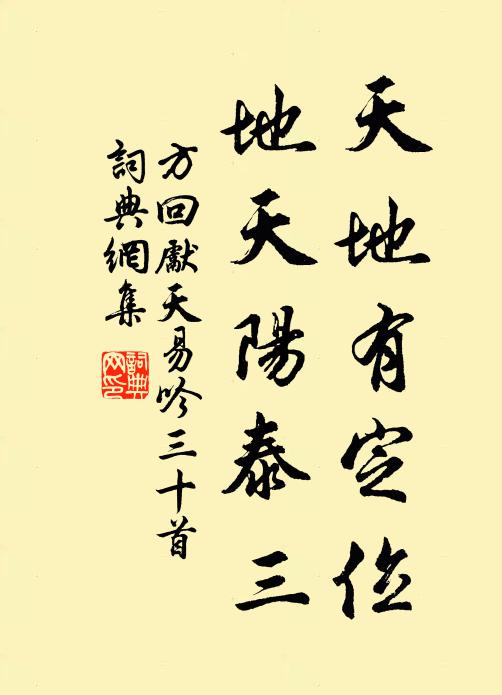 天地有定位
地天陽泰三
方回獻天易吟三十首
詞典網集
詞典網印